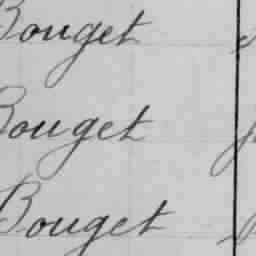 Bouget
Bouget
Bouget